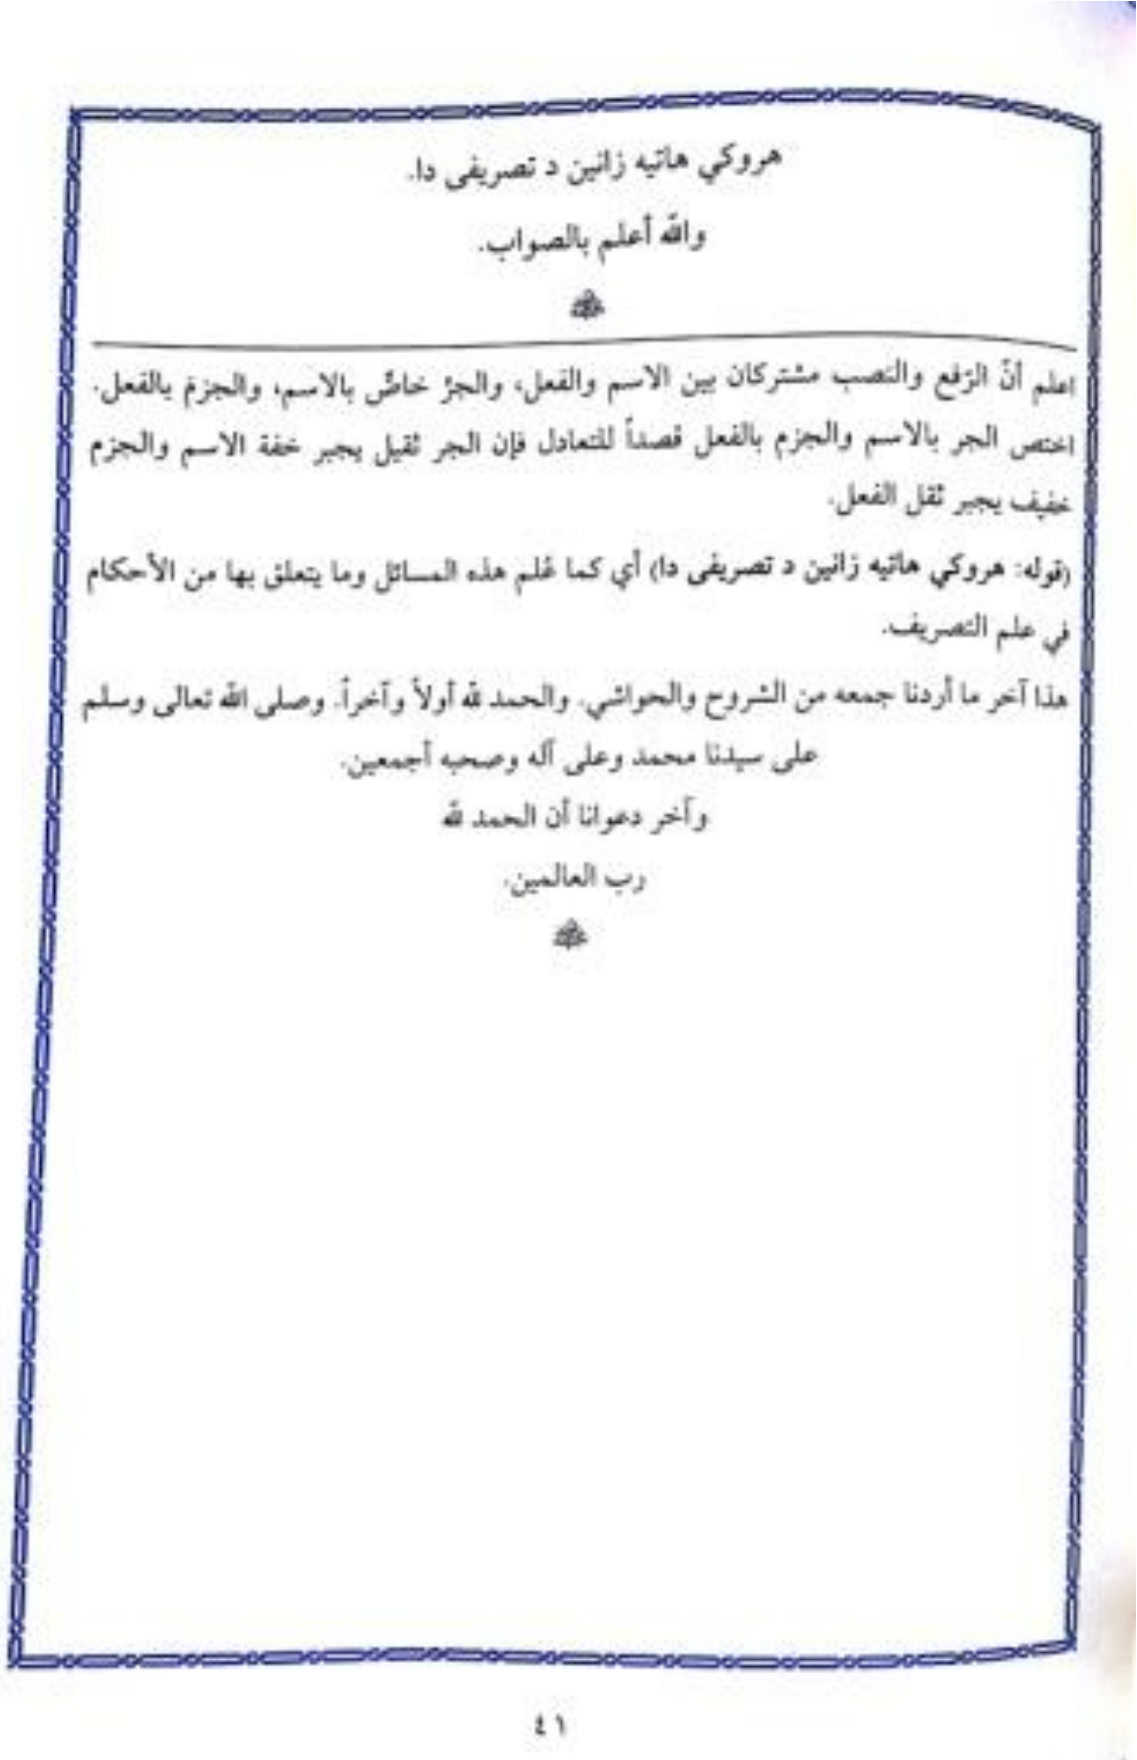 هروكي هاتيه زانين د تصريفى دا.
والله أعلم بالصواب.
اعلم أنّ الرّفع والنّصب مشتركان بين الاسم والفعل، والجرُّ خاصٌّ بالاسم، والجزمَ بالفعل.
اختص الجر بالاسم والجزم بالفعل قصداً للتعادل فإن الجر ثقيل يجبر خفة الاسم والجزم
خفيف يجبر ثقل الفعل.
(قوله: هروكي هاتيه زانين د تصريفى دا) أي كما عُلم هذه المسائل وما يتعلق بها من الأحكام
في علم التّصريف.
هذا آخر ما أردنا جمعه من الشروح والحواشي. والحمد لله أولاً وآخراً. وصلى الله تعالى وسلم
على سيدنا محمد وعلى آله وصحبه أجمعين.
وآخر دعوانا أن الحمد لله
رب العالمين.
٤١